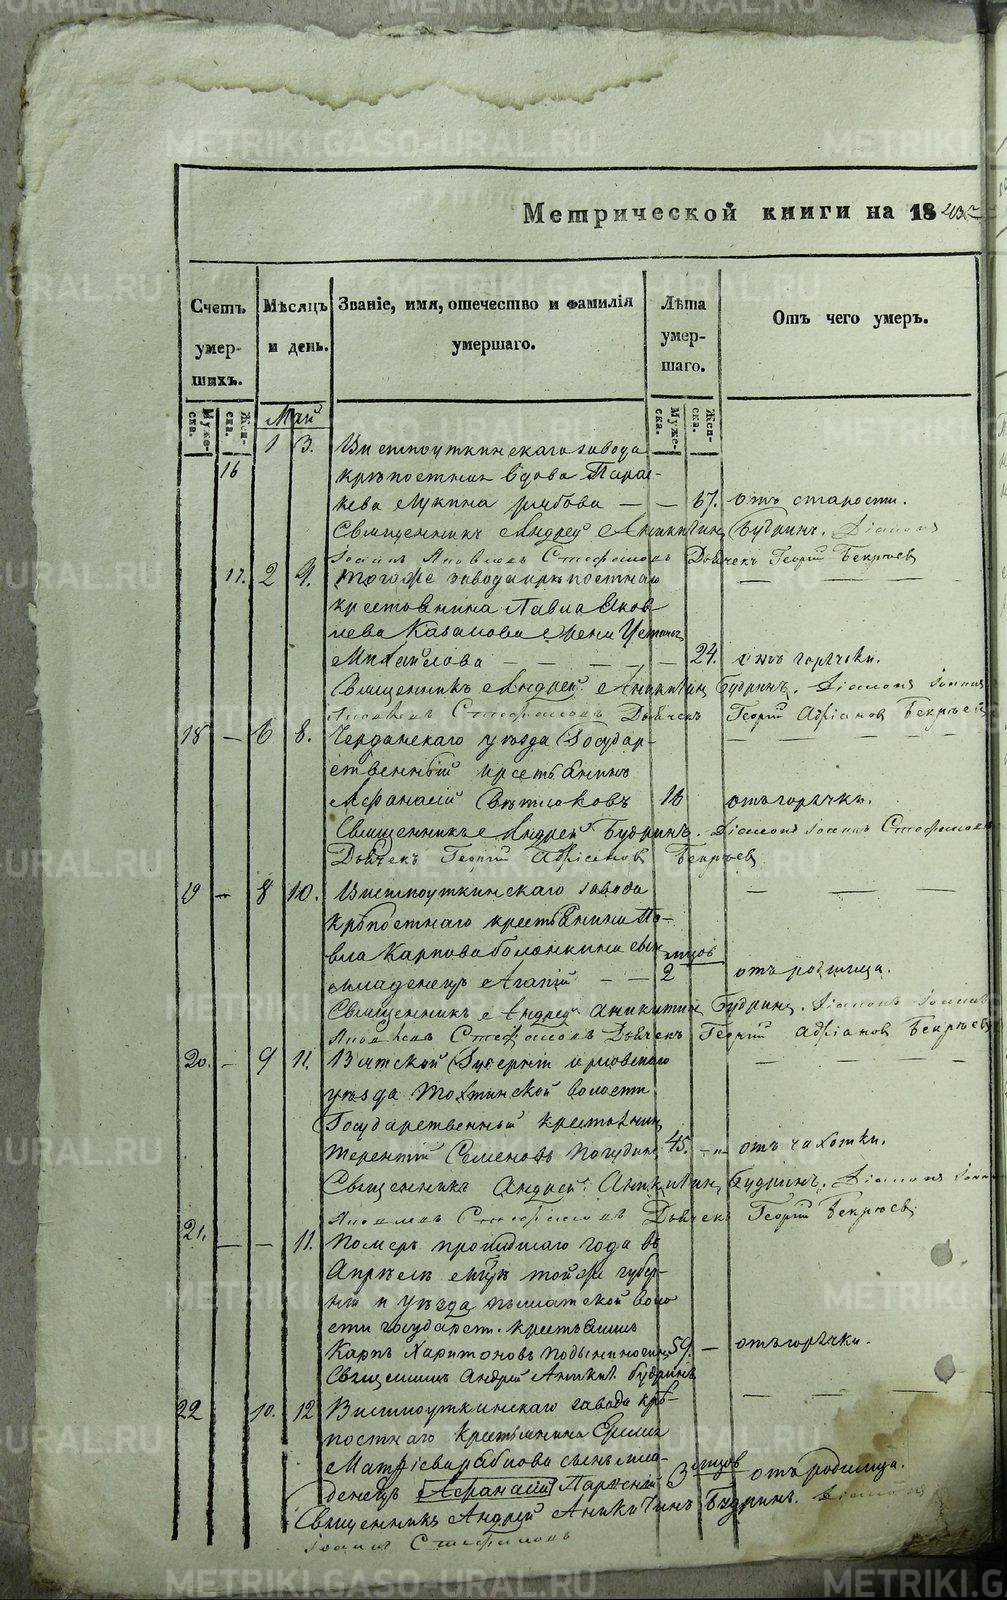 Метрической книги на 18
Счетъ умер- шихъ.
Мѣсяцъ и день.
Званіе, имя, отечество и фамилія умершаго.
Лѣта умер- шаго.
Отъ чего умеръ.
Муже- ска.
Жен- ска.
Май
Муже- ска.
Жен- ска.
1 3. Висимоуткинскаго завода
16 крѣпостная вдова Парас-
кева Лукина — — 67. отъ старости.
Священникъ Андрей Аникитин Будринъ. Діаконъ
Іоаннъ Яковлевъ Стефановъ Дьячекъ Георгій Бекрѣев
17. 2 9. Того же завода крѣпостнаго
крестьянина Павла Яков
лева Казакова жена Устинья
Михайлова — — — — 24. отъ горячки.
Священникъ Андрей Аникитин Будринъ. Діаконъ Іоаннъ
Яковлевъ Стефановъ Дьячекъ Георгій Адріанов Бекрѣев
18 — 6 8. Чердынскаго уѣзда Государ-
ственный крестьянинъ
Афанасій 16 отъ горячки.
Священникъ Андрей Будринъ. Діаконъ Іоаннъ Стефановъ
Дьячекъ Георгій Адріанов Бекрѣев
19 — 8 10. Висимоуткинскаго завода
крѣпостнаго крестьянина Па-
вла Карпова сын мцов
младенецъ Агапій — — 2 отъ родимца.
Священникъ Андрей Аникитин Будрин. Діаконъ Іоаннъ
Яковлевъ Стефановъ Дьячекъ Георгій Адріанов Бекрѣев
20. — 9 11. Вятской Губерніи Орловскаго
уѣзда Тохтинской волости
Государственный крестьянин
Терентій Семеновъ Погудин 45. — отъ чахотки.
Священникъ Андрей Аникитин Будринъ. Діаконъ Іоаннъ
Яковлевъ Стефановъ Дьячекъ Георгій Бекрѣев
21. — — 11. Померъ прошедшаго года въ
Апрѣлѣ мцѣ той же губер-
ніи и уѣзда воло
сти государст. крестьянинъ
Карпъ Харитоновъ 59. — отъ горячки.
Священникъ Андрей Аникит. Будринъ
22 10. 12 Висимоуткинскаго завода крѣ-
постнаго крестьянина
Матфіева сынъ мла-
денецъ Афанасій 3 мцов отъ родимца.
Священникъ Андрей Аникитинъ Будринъ. Діаконъ
Іоаннъ Стефановъ
METRIKI.GASO-URAL.RU